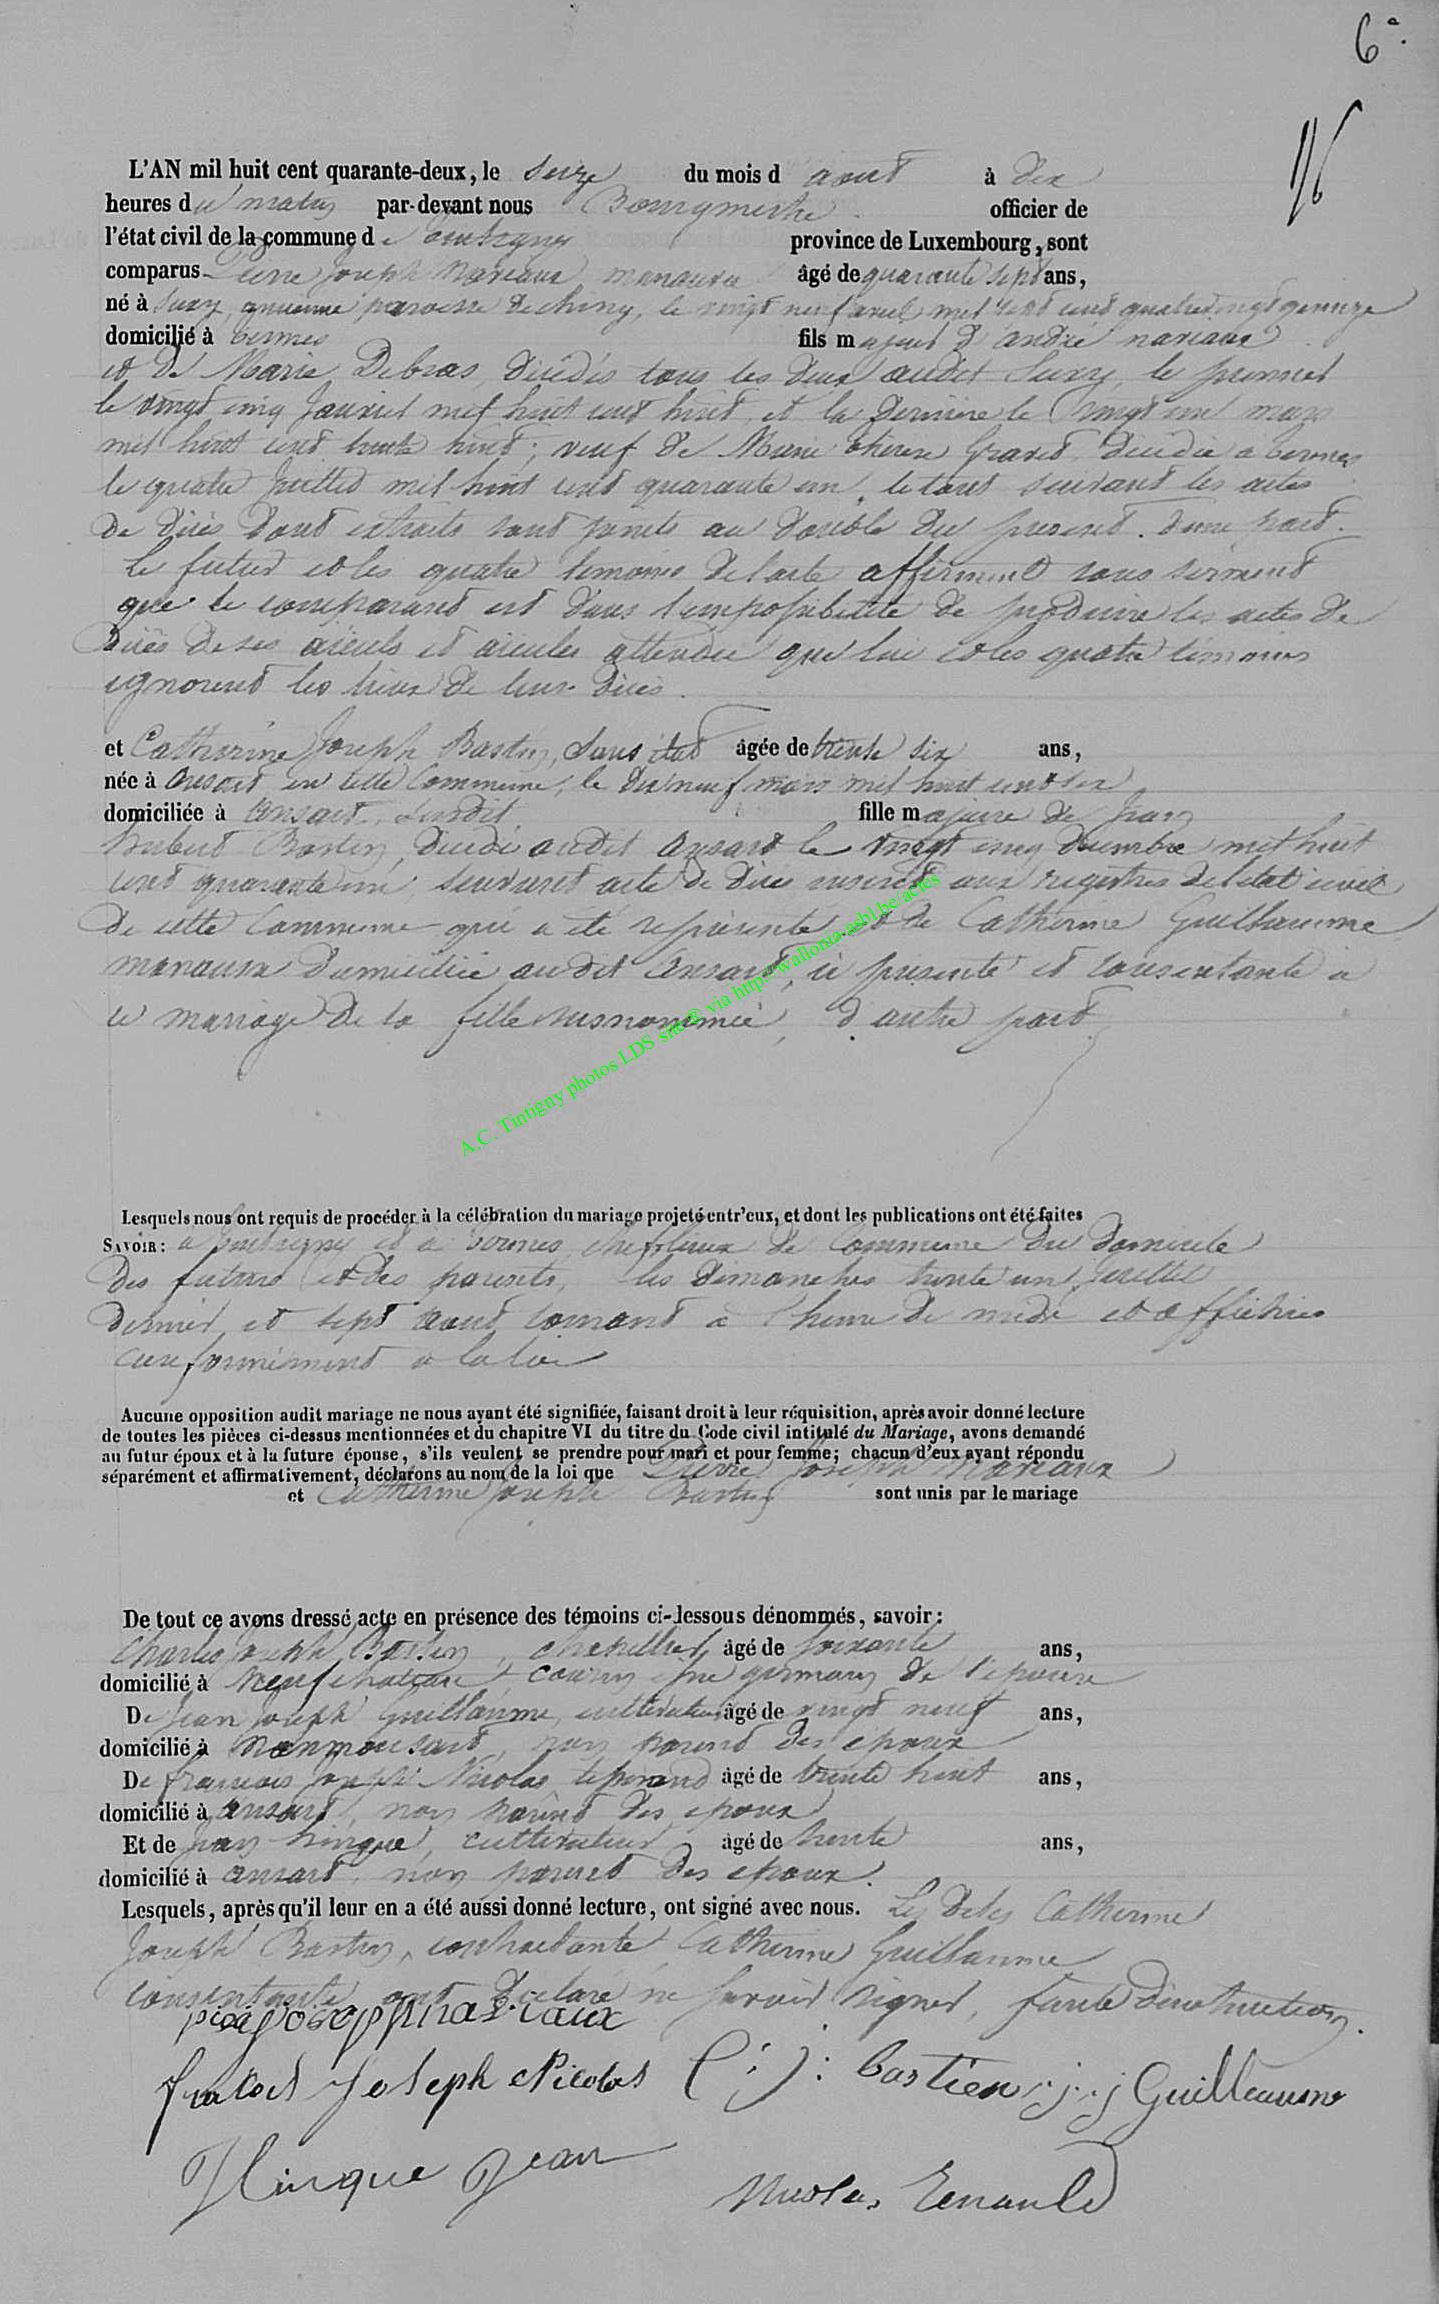 6e.
116
L'AN mil huit cent quarante-deux, le seize du mois d aout à dix
heures du matin par-devant nous Bourgmestre officier de
l'état civil de la commune de Tintigny province de Luxembourg, sont
comparus Pierre Joseph Nariaux manœuvre âgé de quarante sept ans,
né à Suxy, ancienne paroisse de Chiny, le vingt neuf avril mil sept cent quatre vingt quinze
domicilié à termes fils majeur d'andré nariaux
et de Marie Debras, décédés tous les deux audit Suxy, le premier
le vingt cinq Janvier mil huit cent huit, et la dernière le vingt un mars
mil huit cent trente huit; veuf de Marie thérese Gravet décédée à termes
le quatre Juillet mil huit cent quarante un. le tout suivant les actes
de décès dont extraits sont joints au double du présent. d'une part.
Le futur et les quatre témoins de l'acte affirment sous serment
que le comparant est dans l'impossibilité de produire les actes de
décès de ses aïeuls et aïeules attendu que lui et les quatre témoins
ignorent les lieux de leurs décès.
et Catherine Joseph Bastin, Sans état âgée de trente six ans,
née à ansart en cette Commune, le dix neuf mars mil huit cent six
domiciliée à ansart susdit fille majeure de Jean
hubert Bastin, décédé audit Ansart le vingt cinq décembre mil huit
cent quarante un, suivant acte de décès inscrit aux registres de l'état civil
de cette Commune qui a été représenté et de Catherine Guillaume
manœuvre domiciliée audit Ansart, ici présente et consentante à
ce mariage de la fille susnommée, d'autre part
A.C. Tintigny photos LDS site via http://wallonia.asbl.be/actes
Lesquels nous ont requis de procéder à la célébration du mariage projeté entr'eux, et dont les publications ont été faites
SAVOIR: à Tintigny et à termes, cheflieux de Commune du domicile
des futurs et des parents, les dimanches trente un Juillet
dernier, et sept aout courant à l'heure de midi et affichées
conformément à la loi
Aucune opposition audit mariage ne nous ayant été signifiée, faisant droit à leur réquisition, après avoir donné lecture
de toutes les pièces ci-dessus mentionnées et du chapitre VI du titre du Code civil intitulé du Mariage, avons demandé
au futur époux et à la future épouse, s'ils veulent se prendre pour mari et pour femme; chacun d'eux ayant répondu
séparément et affirmativement, déclarons au nom de la loi que Pierre Joseph Nariaux
et Catherine Joseph Bastin sont unis par le mariage
De tout ce avons dressé acte en présence des témoins ci-dessous dénommés, savoir:
Charles Joseph Bastien, chapellier, âgé de soixante ans,
domicilié à Neufchateau, cousin germain de l'épouse
De Jean Joseph Guillaume, cultivateur âgé de vingt neuf ans,
domicilié à non parent des époux
De francois Joseph Nicolas, tisserand âgé de trente huit ans,
domicilié à ansart, non parent des époux
Et de Jean hinque, cultivateur âgé de trente ans,
domicilié à ansart, non parent des époux.
Lesquels, après qu'il leur en a été aussi donné lecture, ont signé avec nous. Les dites Catherine
Joseph Bastin, contractante, Catherine Guillaume
consentante, ont déclaré ne savoir signer, faute d'instruction.
joseph nariaux
Joseph Nicolas C: J: bastien j. j Guilleaume
Hinque Jean
Nicolas Renauld